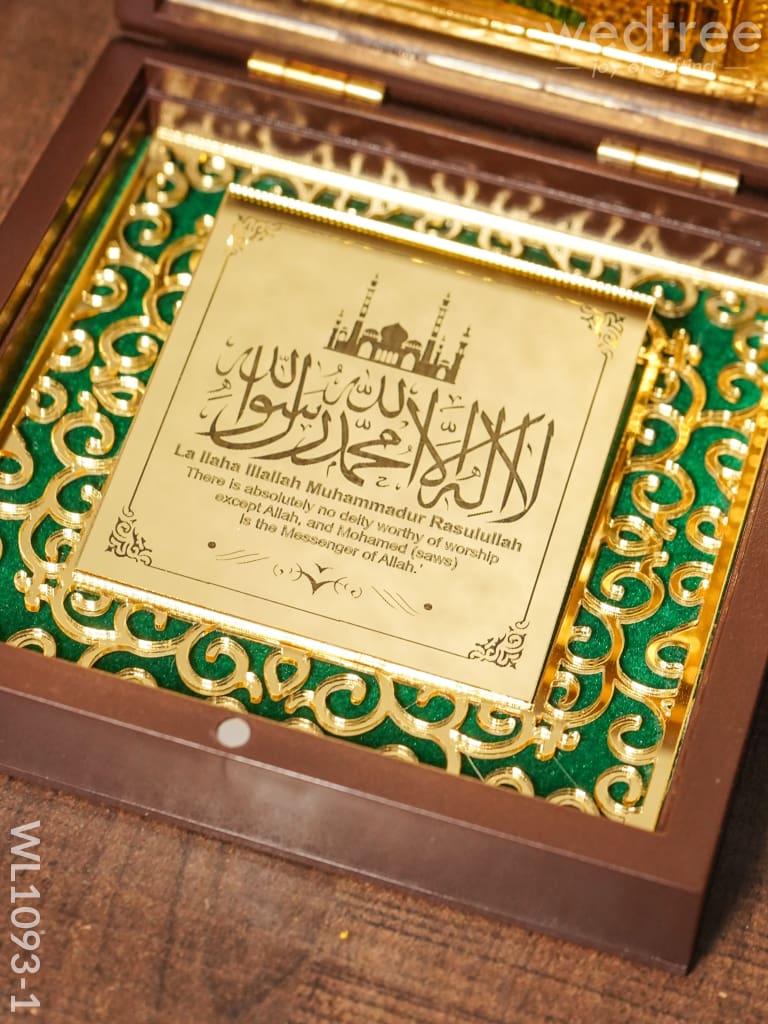 wedtree
joy of gifting
لا إله إلا الله محمد رسول الله
La Ilaha Illallah Muhammadur Rasulullah
There is absolutely no deity worthy of worship
except Allah, and Mohamed (saws)
Is the Messenger of Allah.'
WL1093-1